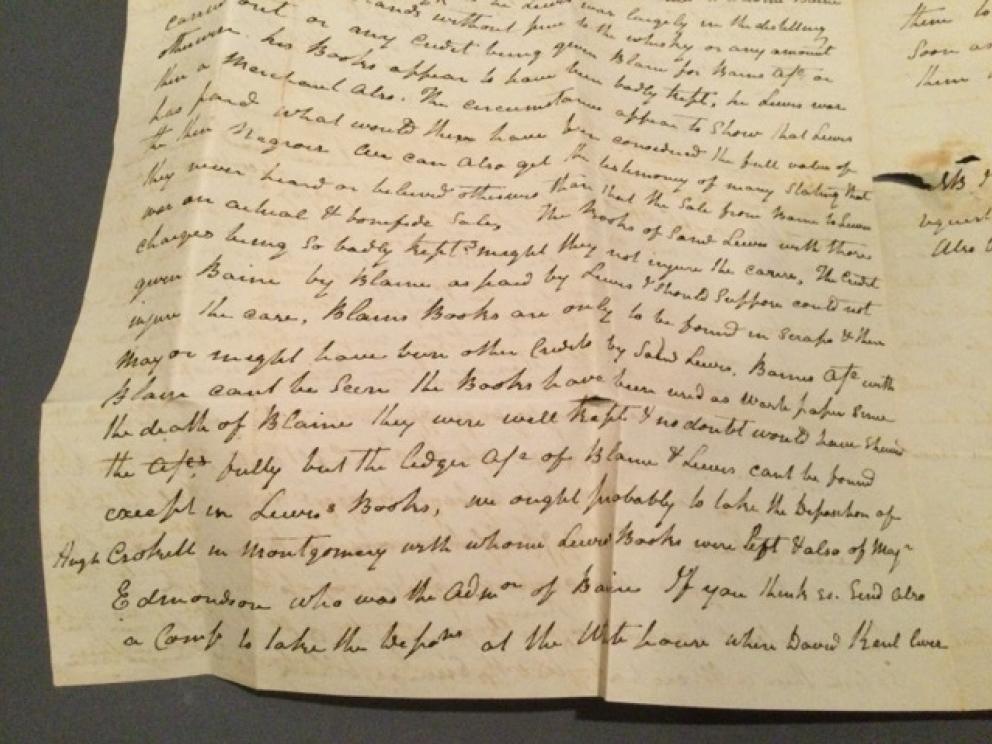 he Lewis was largely in the distilling
cannot out or any hands without price to the whisky or any amount
otherwise. his Books appear to have been badly kept, he Lewis was
then a Merchant also. The circumstances appear to Show that Lewis
has paid what would then have been considered the full value of
the then Negroes We can also get the testimony of many Stating that
they never heard or believed otherwise than that the Sale from Baine to Lewis
was an actual & bonifide Sale, The Books of Said Lewis with those
charges being So badly kept might they not injure the cause, The Credit
given Baine by Blaine as paid by Lewis I Should Suppose could not
injure the case, Blains Books are only to be found in scraps & there
may or might have been other Credits by Said Lewis. Baines a/c with
Blain cant be Seen the Books have been used as waste paper since
the death of Blaine they were well kept & no doubt would have Shewn
the a/cs fully but the ledger a/c of Blaine & Lewis cant be found
except in Lewis's Books, we ought probably to take the Deposition of
Hugh Crokett in Montgomery with whome Lewis Books were left & also of Majr
Edmondson who was the Admor of Baine If you think so. Send also
a Coms to take the Depons at the White house where David Kent lives
them to
Soon as
them
NB I
request
Also